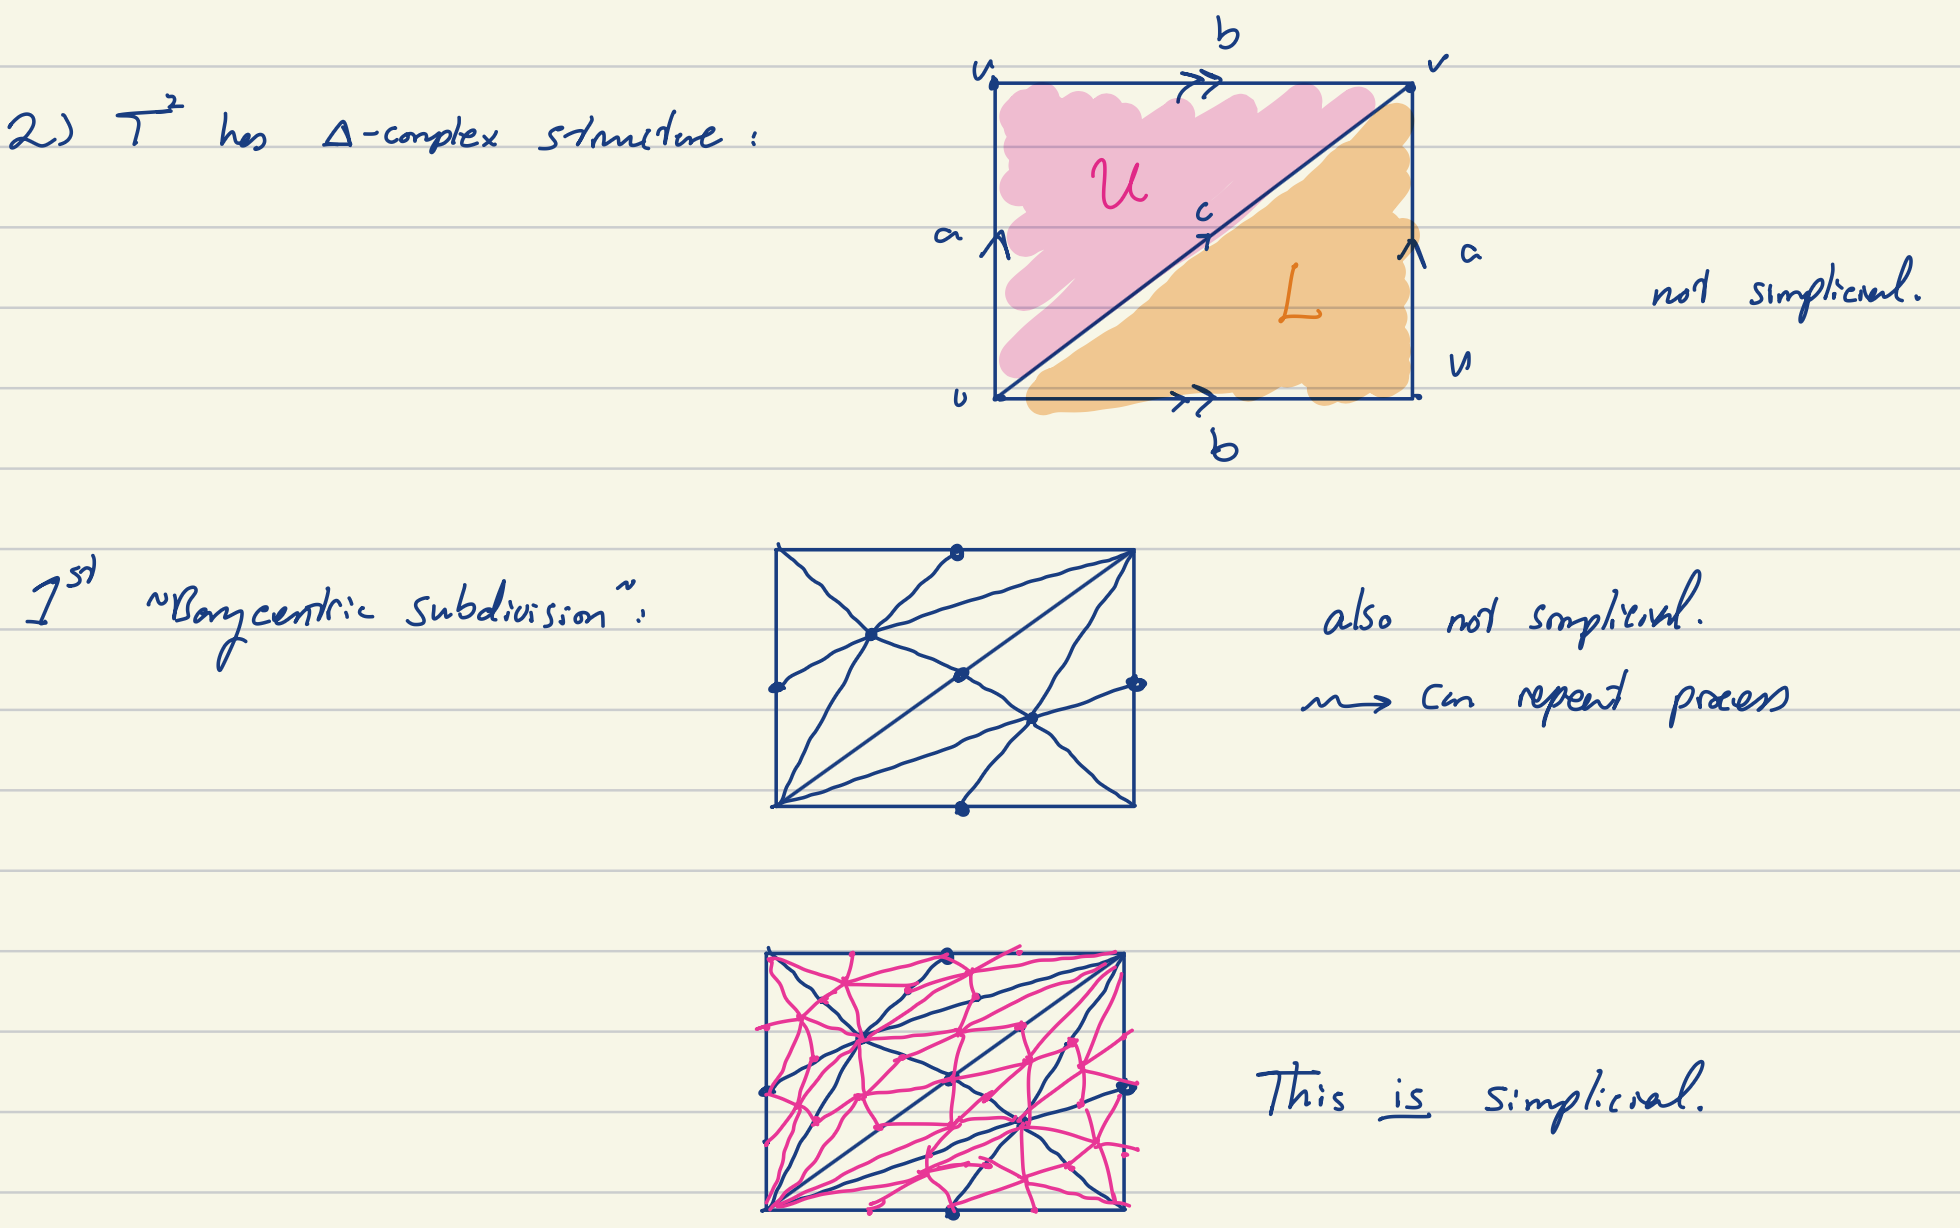 b
v v
2) T² has Δ-complex structure:
U
c
a a
L
not simplicial.
v
v
b
1st "Barycentric subdivision":
also not simplicial.
⇝ can repeat process
This is simplicial.